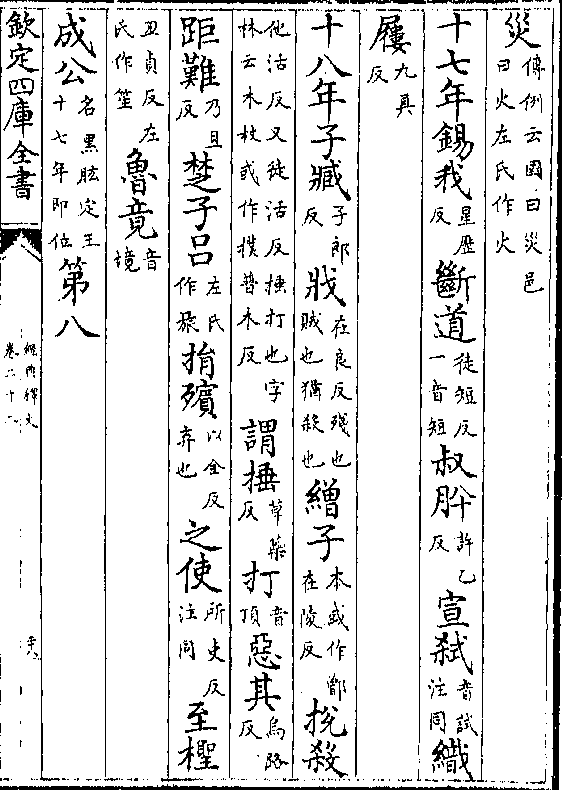 災傳例云國曰災邑曰火左氏作火
十七年錫我星歷反斷道徒短反一音短叔肸許乙反宣弑音試注同織
屨九具反
十八年子臧子郎反戕在良反殘也賊也猶殺也繒子本或作鄫在陵反挩殺
他活反又徒活反捶打也字林云木杖或作撲普木反謂捶章蘂反打音頂惡其烏路反
距難乃旦反楚子吕左氏作旅捐殯以全反弃也之使所吏反注同至檉
丑貞反左氏作笙魯竟音境
成公名黑肱定王十七年即位第八
欽定四庫全書
經典釋文
卷二十一